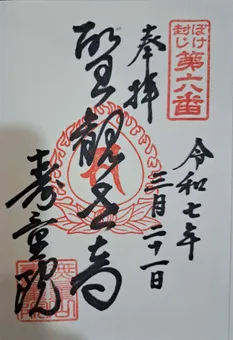 ぼけ
封じ
第六番
奉拝
令和七年
三月二十一日
聖観世音